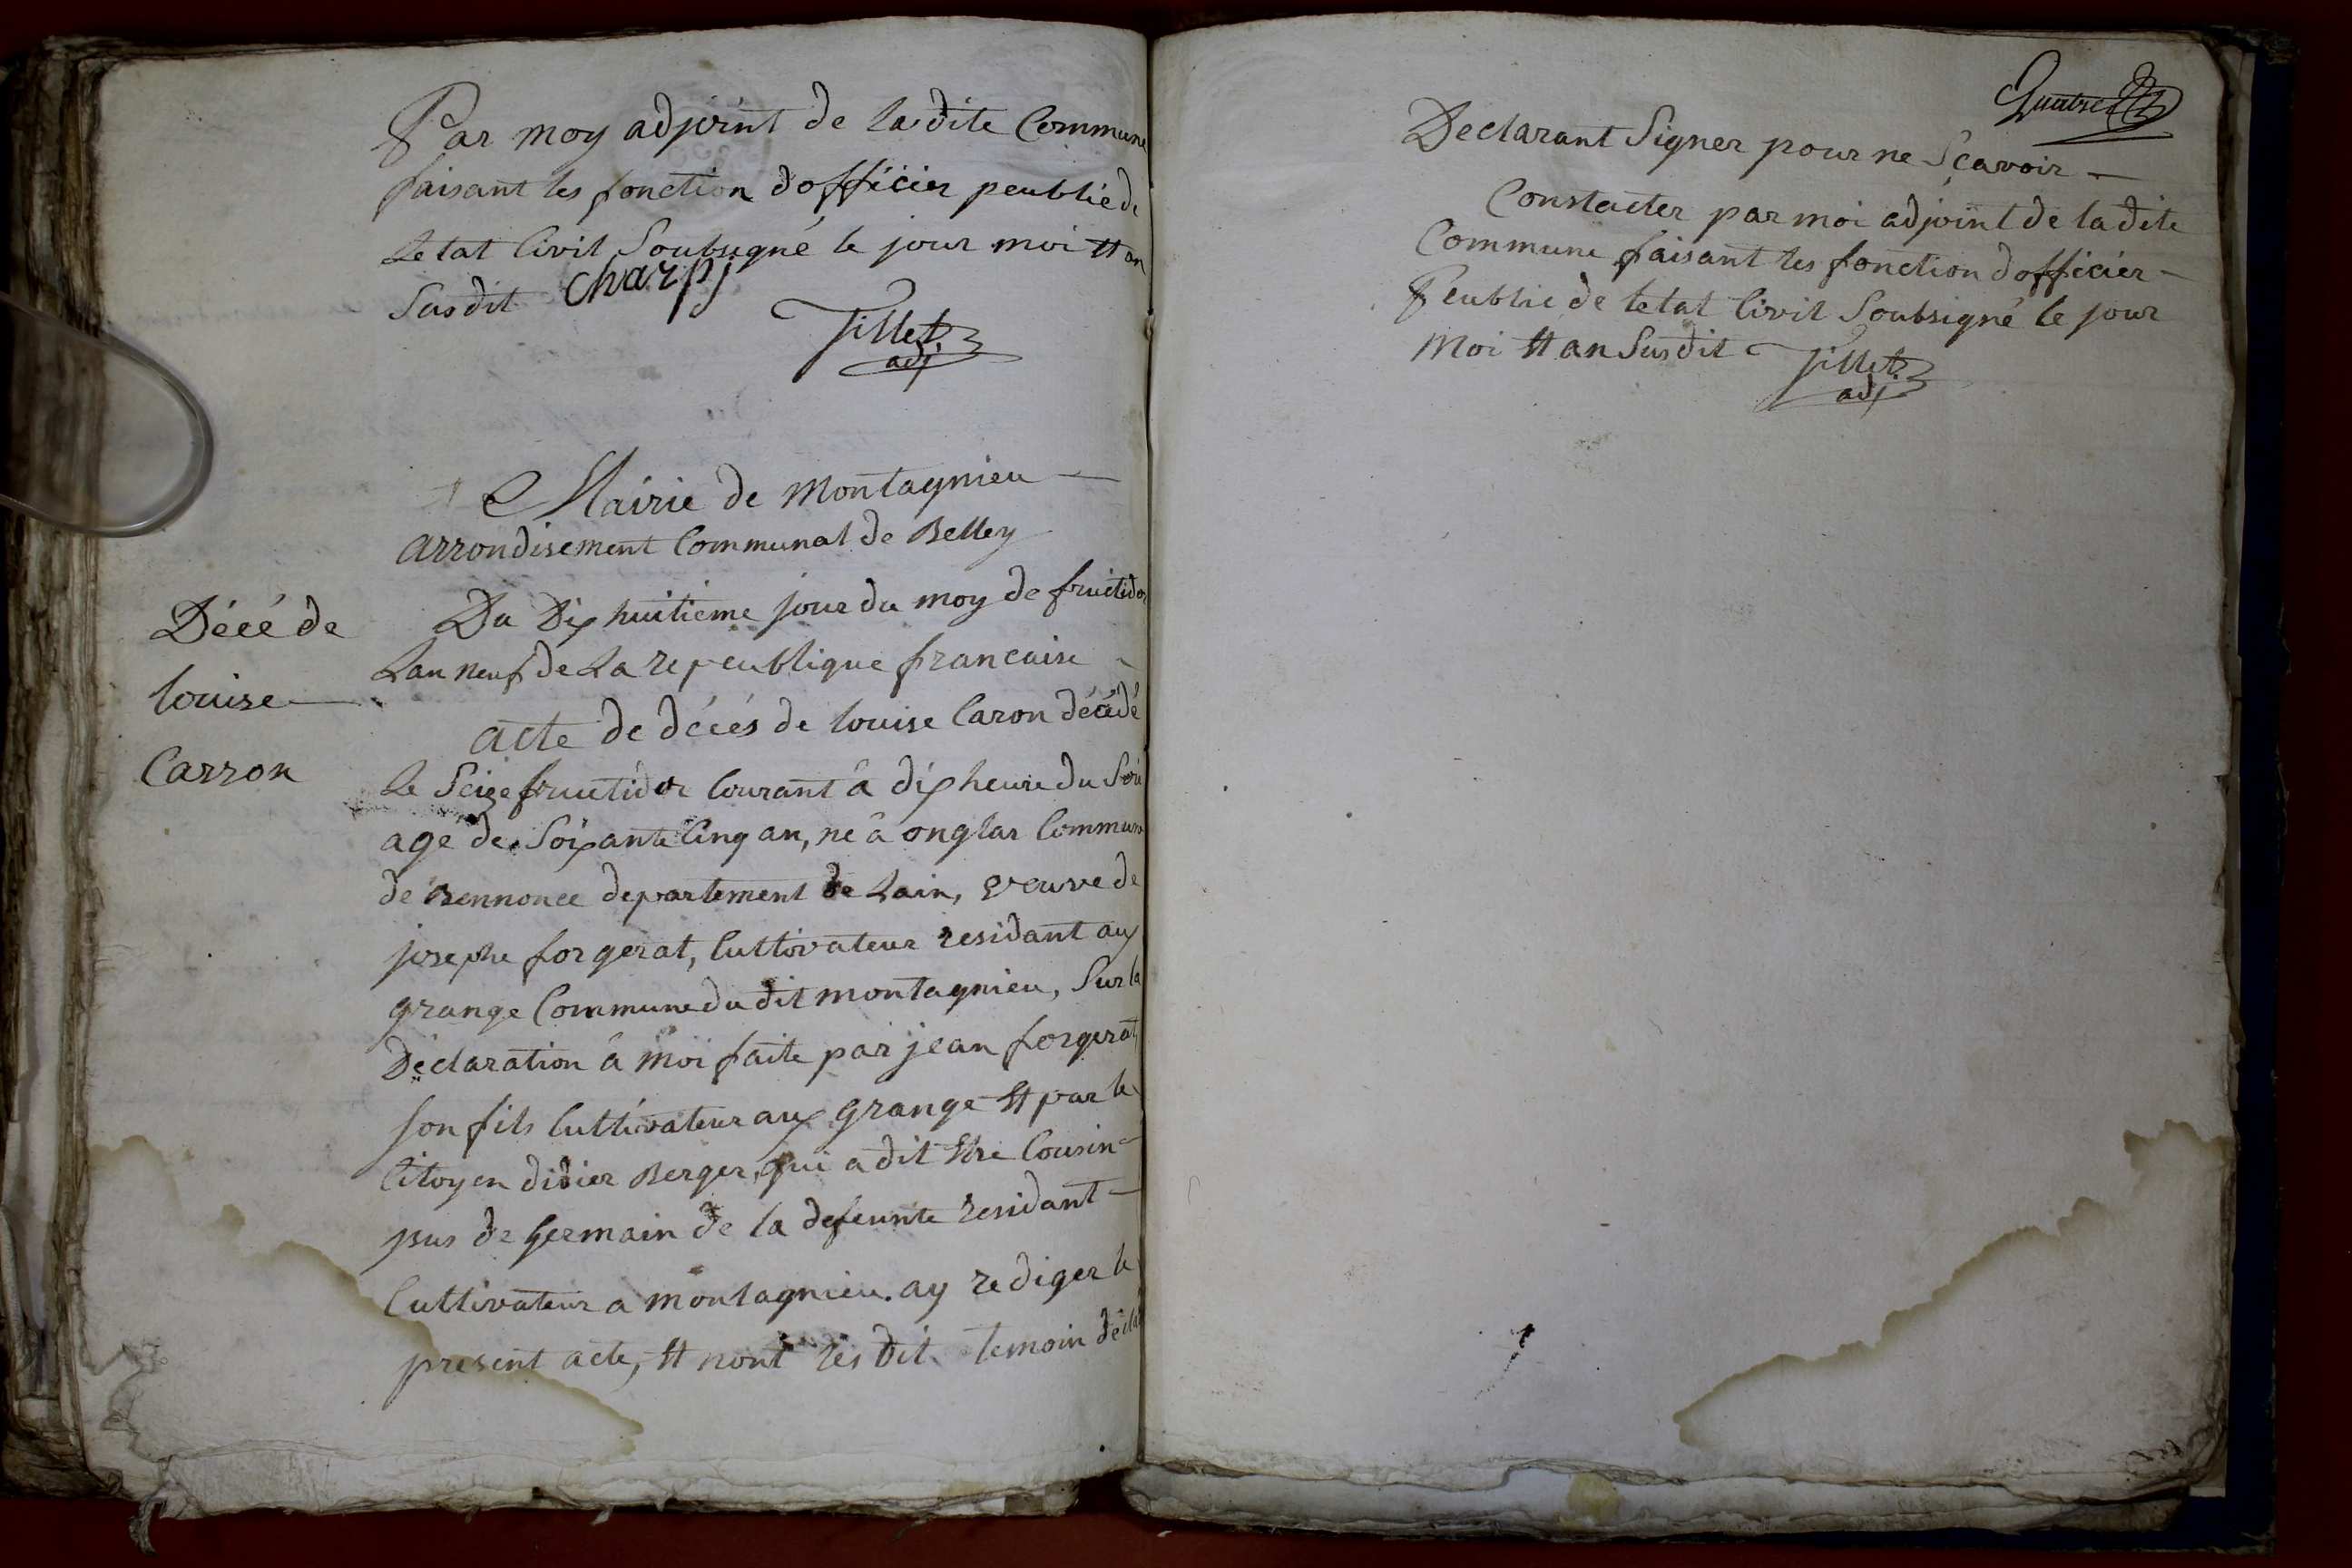 Par moy adjoint de la dite Commune
faisant les fonction dofficier peublie de
Letat Civil Soubsigné le jour moi et an
Susdit Charpj
Tillet
adj
Mairie de Montagnieu
arrondisement Communal de Belley
Décé de
louise
Carron
Du Dix huitieme jour du moy de fructidor
Lan neuf de La republique francaise
acte de décés de louise Caron décédé
Le Seize fructidor Courant à dix heure du Soir
agé de Soixante Cinq an, né à onglas Commune
de Bennonce departement de Lain, veuve de
josephe forgerat, Cultivateur residant aux
grange Commune du dit montagnieu, Sur la
Déclaration à moi faite par jean forgerat,
son fils Cultivateur aux grange et par le
Citoyen didier Berger, qui a dit etre Cousin
pus de Germain de la defeunte residant
Cultivateur a montagnieu. ay rediger le
present acte, et nont les dit temoin décla
Declarant Signer pour ne Scavoir
Constater par moi adjoint de la dite
Commune faisant les fonction dofficier
Peublic de letat Civil Soubsigné le jour
Moi et an Susdit Tillet
adj